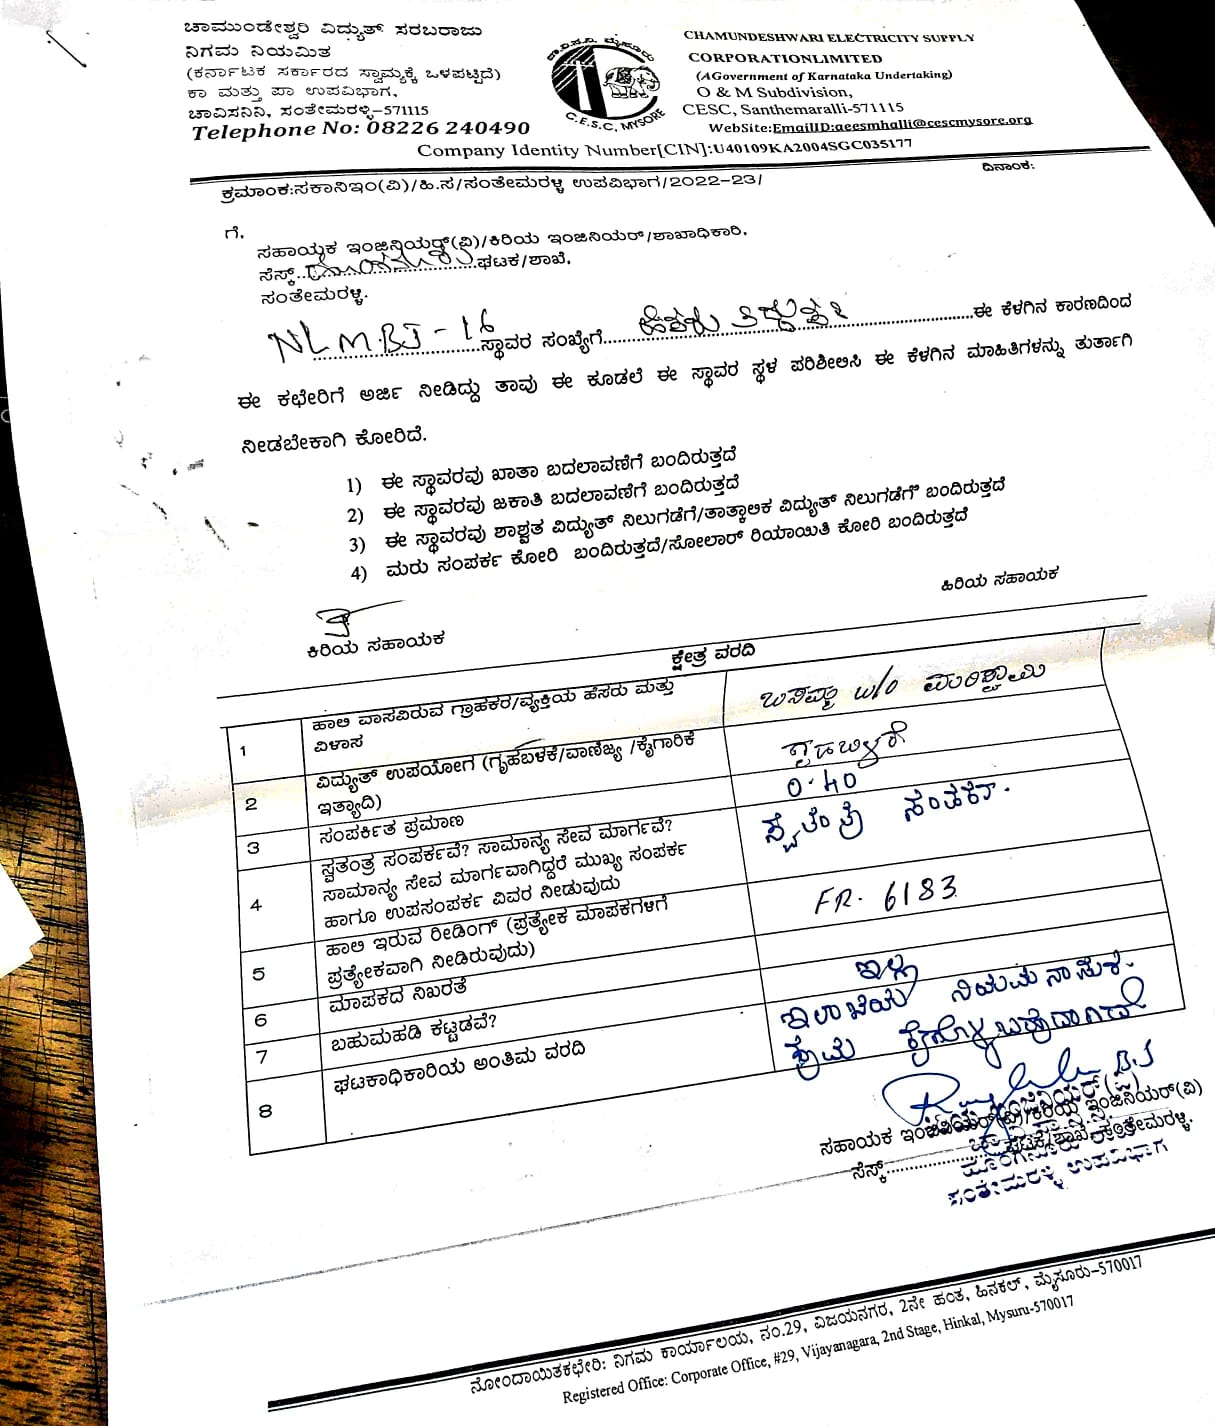 ಚಾಮುಂಡೇಶ್ವರಿ ವಿದ್ಯುತ್ ಸರಬರಾಜು
ನಿಗಮ ನಿಯಮಿತ
(ಕರ್ನಾಟಕ ಸರ್ಕಾರದ ಸ್ವಾಮ್ಯಕ್ಕೆ ಒಳಪಟ್ಟಿದೆ)
ಕಾ ಮತ್ತು ಪಾ ಉಪವಿಭಾಗ,
ಚಾವಿಸನಿನಿ, ಸಂತೇಮರಳ್ಳಿ-571115
Telephone No: 08226 240490
ಚಾ.ವಿ.ಸ.ನಿ. ಮೈಸೂರು
C.E.S.C, MYSORE
CHAMUNDESHWARI ELECTRICITY SUPPLY
CORPORATIONLIMITED
(AGovernment of Karnataka Undertaking)
O & M Subdivision,
CESC, Santhemaralli-571115
WebSite:EmailID:aeesmhalli@cescmysore.org
Company Identity Number[CIN]:U40109KA2004SGC035177
ಕ್ರಮಾಂಕ:ಸಕಾನಿಇಂ(ವಿ)/ಹಿ.ಸ/ಸಂತೇಮರಳ್ಳಿ ಉಪವಿಭಾಗ/2022-23/ ದಿನಾಂಕ:
ಗೆ,
ಸಹಾಯಕ ಇಂಜಿನಿಯರ್(ವಿ)/ಕಿರಿಯ ಇಂಜಿನಿಯರ್/ಶಾಖಾಧಿಕಾರಿ,
ಸೆಸ್ಕ್..................ಘಟಕ/ಶಾಖೆ,
ಸಂತೇಮರಳ್ಳಿ.
NLMBJ-16 ಸ್ಥಾವರ ಸಂಖ್ಯೆಗೆ ಹೆಸರು ತಿದ್ದುಪಡಿ ಈ ಕೆಳಗಿನ ಕಾರಣದಿಂದ
ಈ ಕಛೇರಿಗೆ ಅರ್ಜಿ ನೀಡಿದ್ದು ತಾವು ಈ ಕೂಡಲೆ ಈ ಸ್ಥಾವರ ಸ್ಥಳ ಪರಿಶೀಲಿಸಿ ಈ ಕೆಳಗಿನ ಮಾಹಿತಿಗಳನ್ನು ತುರ್ತಾಗಿ
ನೀಡಬೇಕಾಗಿ ಕೋರಿದೆ.
1) ಈ ಸ್ಥಾವರವು ಖಾತಾ ಬದಲಾವಣೆಗೆ ಬಂದಿರುತ್ತದೆ
2) ಈ ಸ್ಥಾವರವು ಜಕಾತಿ ಬದಲಾವಣೆಗೆ ಬಂದಿರುತ್ತದೆ
3) ಈ ಸ್ಥಾವರವು ಶಾಶ್ವತ ವಿದ್ಯುತ್ ನಿಲುಗಡೆಗೆ/ತಾತ್ಕಾಲಿಕ ವಿದ್ಯುತ್ ನಿಲುಗಡೆಗೆ ಬಂದಿರುತ್ತದೆ
4) ಮರು ಸಂಪರ್ಕ ಕೋರಿ ಬಂದಿರುತ್ತದೆ/ಸೋಲಾರ್ ರಿಯಾಯಿತಿ ಕೋರಿ ಬಂದಿರುತ್ತದೆ
ಕಿರಿಯ ಸಹಾಯಕ ಹಿರಿಯ ಸಹಾಯಕ
ಕ್ಷೇತ್ರ ವರದಿ
1 ಹಾಲಿ ವಾಸವಿರುವ ಗ್ರಾಹಕರ/ವ್ಯಕ್ತಿಯ ಹೆಸರು ಮತ್ತು
ವಿಳಾಸ
w/o
2 ವಿದ್ಯುತ್ ಉಪಯೋಗ (ಗೃಹಬಳಕೆ/ವಾಣಿಜ್ಯ /ಕೈಗಾರಿಕೆ
ಇತ್ಯಾದಿ)
3 ಸಂಪರ್ಕಿತ ಪ್ರಮಾಣ
0.40
4 ಸ್ವತಂತ್ರ ಸಂಪರ್ಕವೆ? ಸಾಮಾನ್ಯ ಸೇವ ಮಾರ್ಗವೆ?
ಸಾಮಾನ್ಯ ಸೇವ ಮಾರ್ಗವಾಗಿದ್ದರೆ ಮುಖ್ಯ ಸಂಪರ್ಕ
ಹಾಗೂ ಉಪಸಂಪರ್ಕ ವಿವರ ನೀಡುವುದು
ಸ್ವತಂತ್ರ ಸಂಪರ್ಕ.
5 ಹಾಲಿ ಇರುವ ರೀಡಿಂಗ್ (ಪ್ರತ್ಯೇಕ ಮಾಪಕಗಳಿಗೆ
ಪ್ರತ್ಯೇಕವಾಗಿ ನೀಡಿರುವುದು)
FR. 6183
6 ಮಾಪಕದ ನಿಖರತೆ
7 ಬಹುಮಹಡಿ ಕಟ್ಟಡವೆ?
ಇಲ್ಲ
8 ಘಟಕಾಧಿಕಾರಿಯ ಅಂತಿಮ ವರದಿ
ಇಲಾಖೆಯ ನಿಯಮಾನುಸಾರ
ಕ್ರಮ ಕೈಗೊಳ್ಳಬಹುದಾಗಿದೆ
ಸಹಾಯಕ ಇಂಜಿನಿಯರ್(ವಿ)/ಕಿರಿಯ ಇಂಜಿನಿಯರ್(ವಿ)
ಸೆಸ್ಕ್..................ಘಟಕ/ಶಾಖೆ ಸಂತೇಮರಳ್ಳಿ.
ಸಂತೇಮರಳ್ಳಿ ಉಪವಿಭಾಗ
ನೋಂದಾಯಿತಕಛೇರಿ: ನಿಗಮ ಕಾರ್ಯಾಲಯ, ನಂ.29, ವಿಜಯನಗರ, 2ನೇ ಹಂತ, ಹಿನಕಲ್, ಮೈಸೂರು-570017
Registered Office: Corporate Office, #29, Vijayanagara, 2nd Stage, Hinkal, Mysuru-570017